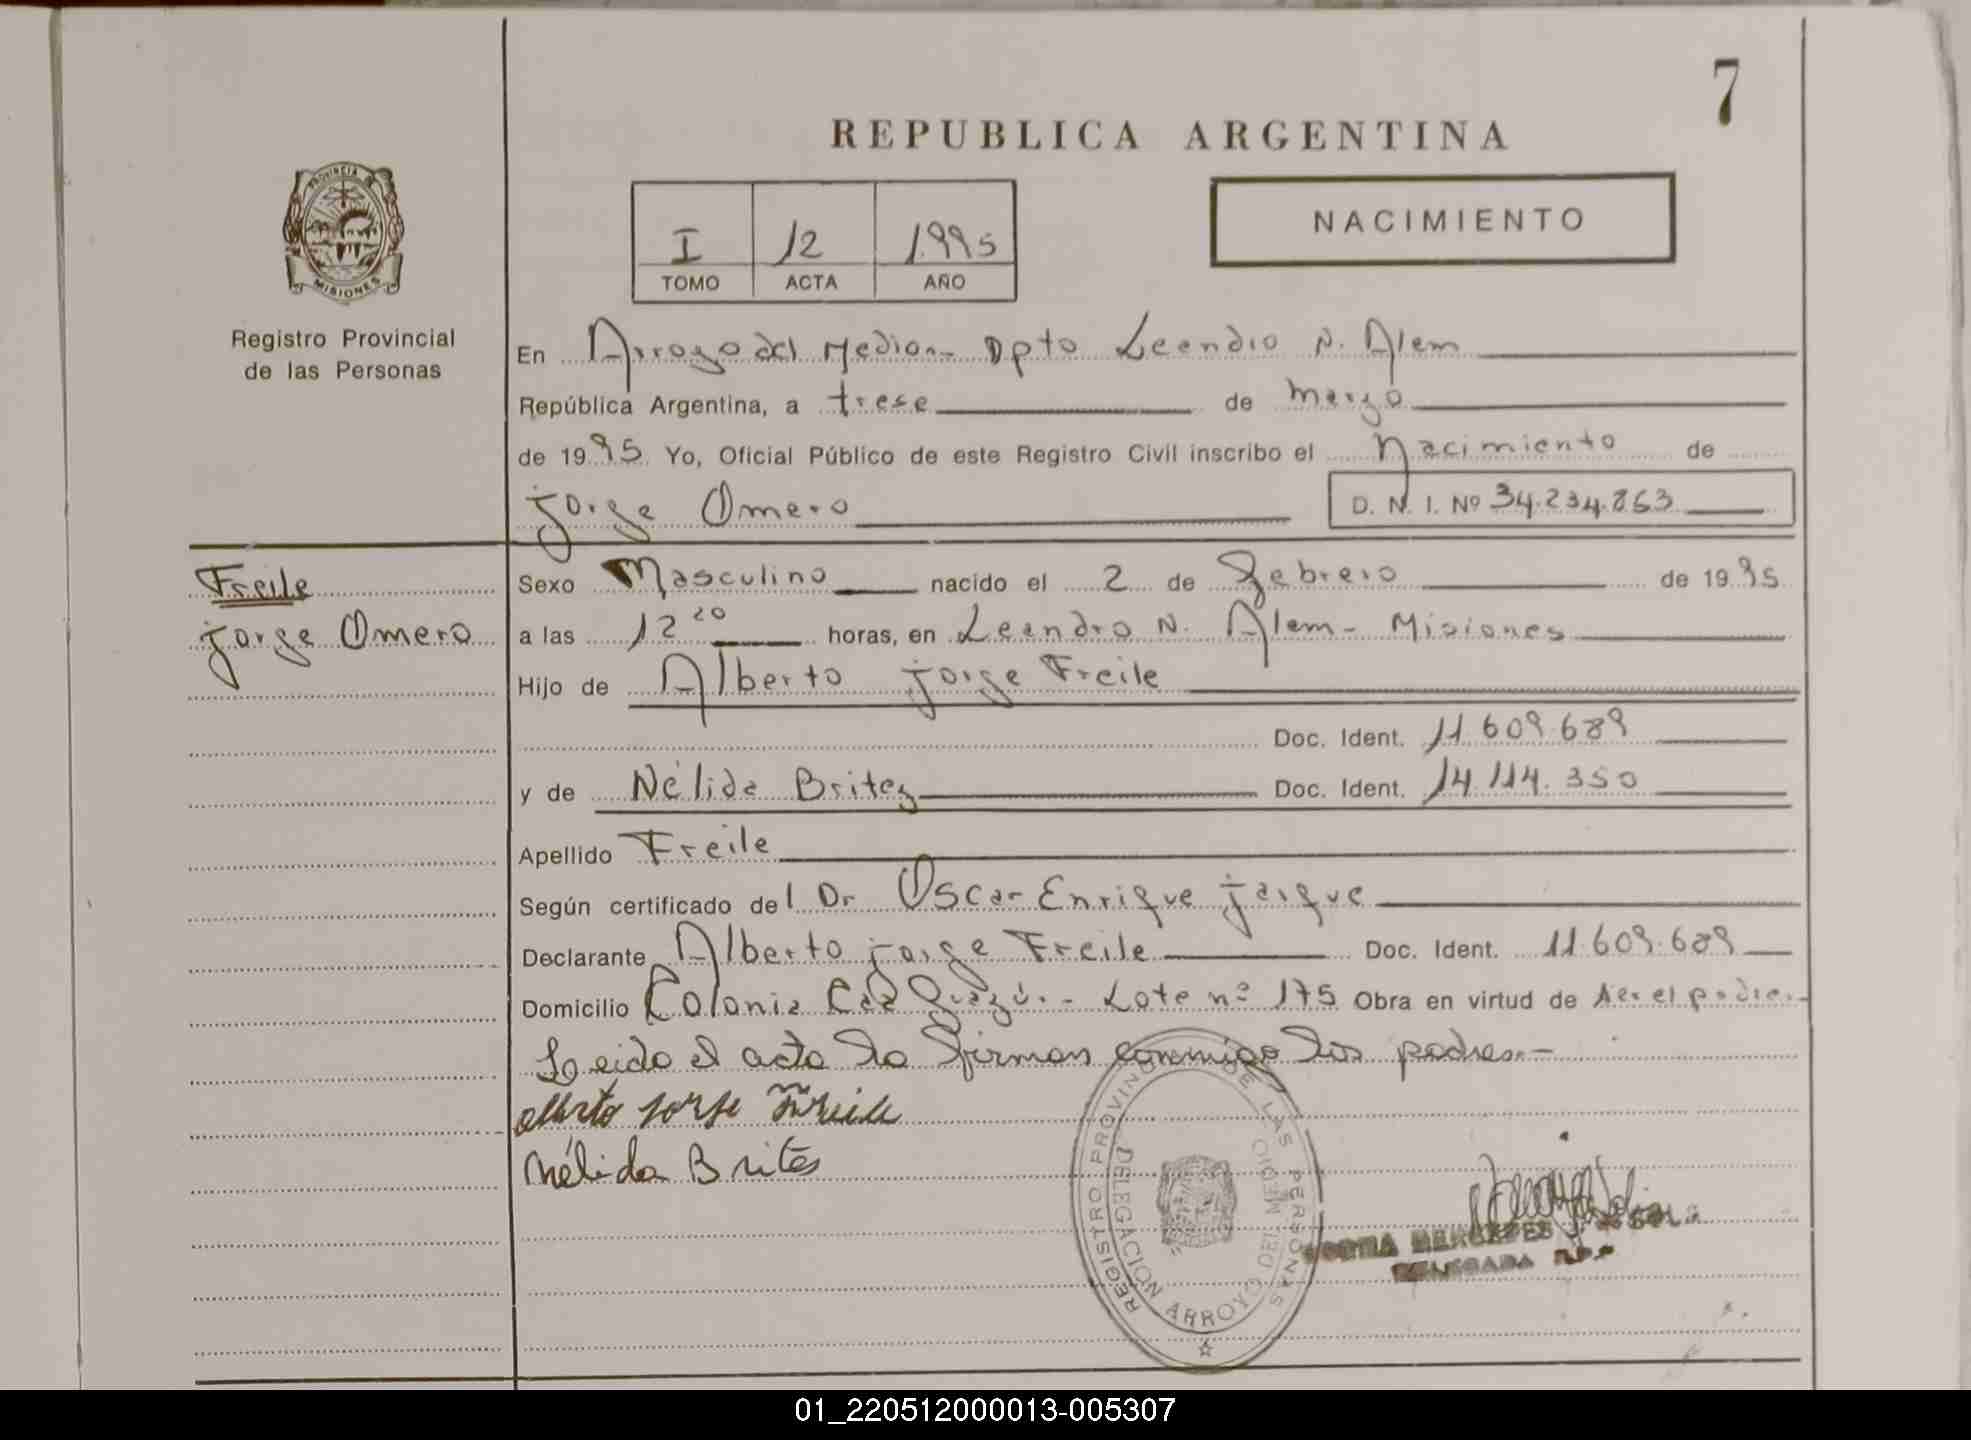 7
REPUBLICA ARGENTINA
PROVINCIA DE
MISIONES
Registro Provincial
de las Personas
I 12 1.995
TOMO ACTA AÑO
NACIMIENTO
En Arroyo del Medio.- Dpto Leandro N. Alem
República Argentina, a trese de marzo
de 1995 Yo, Oficial Público de este Registro Civil inscribo el Nacimiento de
Jorge Omero D. N. I. Nº 34.234.863
Freile
Jorge Omero
Sexo Masculino nacido el 2 de Febrero de 1995
a las 12 20 horas, en Leandro N. Alem - Misiones
Hijo de Alberto Jorge Freile
Doc. Ident. 11.609.689
y de Nélida Britez Doc. Ident. 14.114.350
Apellido Freile
Según certificado del Dr Oscar Enrique Jarque
Declarante Alberto Jorge Freile Doc. Ident. 11.609.689
Domicilio Colonia Caá Guazú.- Lote nº 175 Obra en virtud de ser el padre.-
Leido el acta la firman conmigo los padres.-
Alberto Jorge Freile
Nélida Brites
REGISTRO PROVINCIAL DE LAS PERSONAS
DELEGACION ARROYO DEL MEDIO
MERCEDES
DELEGADA R.P.P
01_220512000013-005307